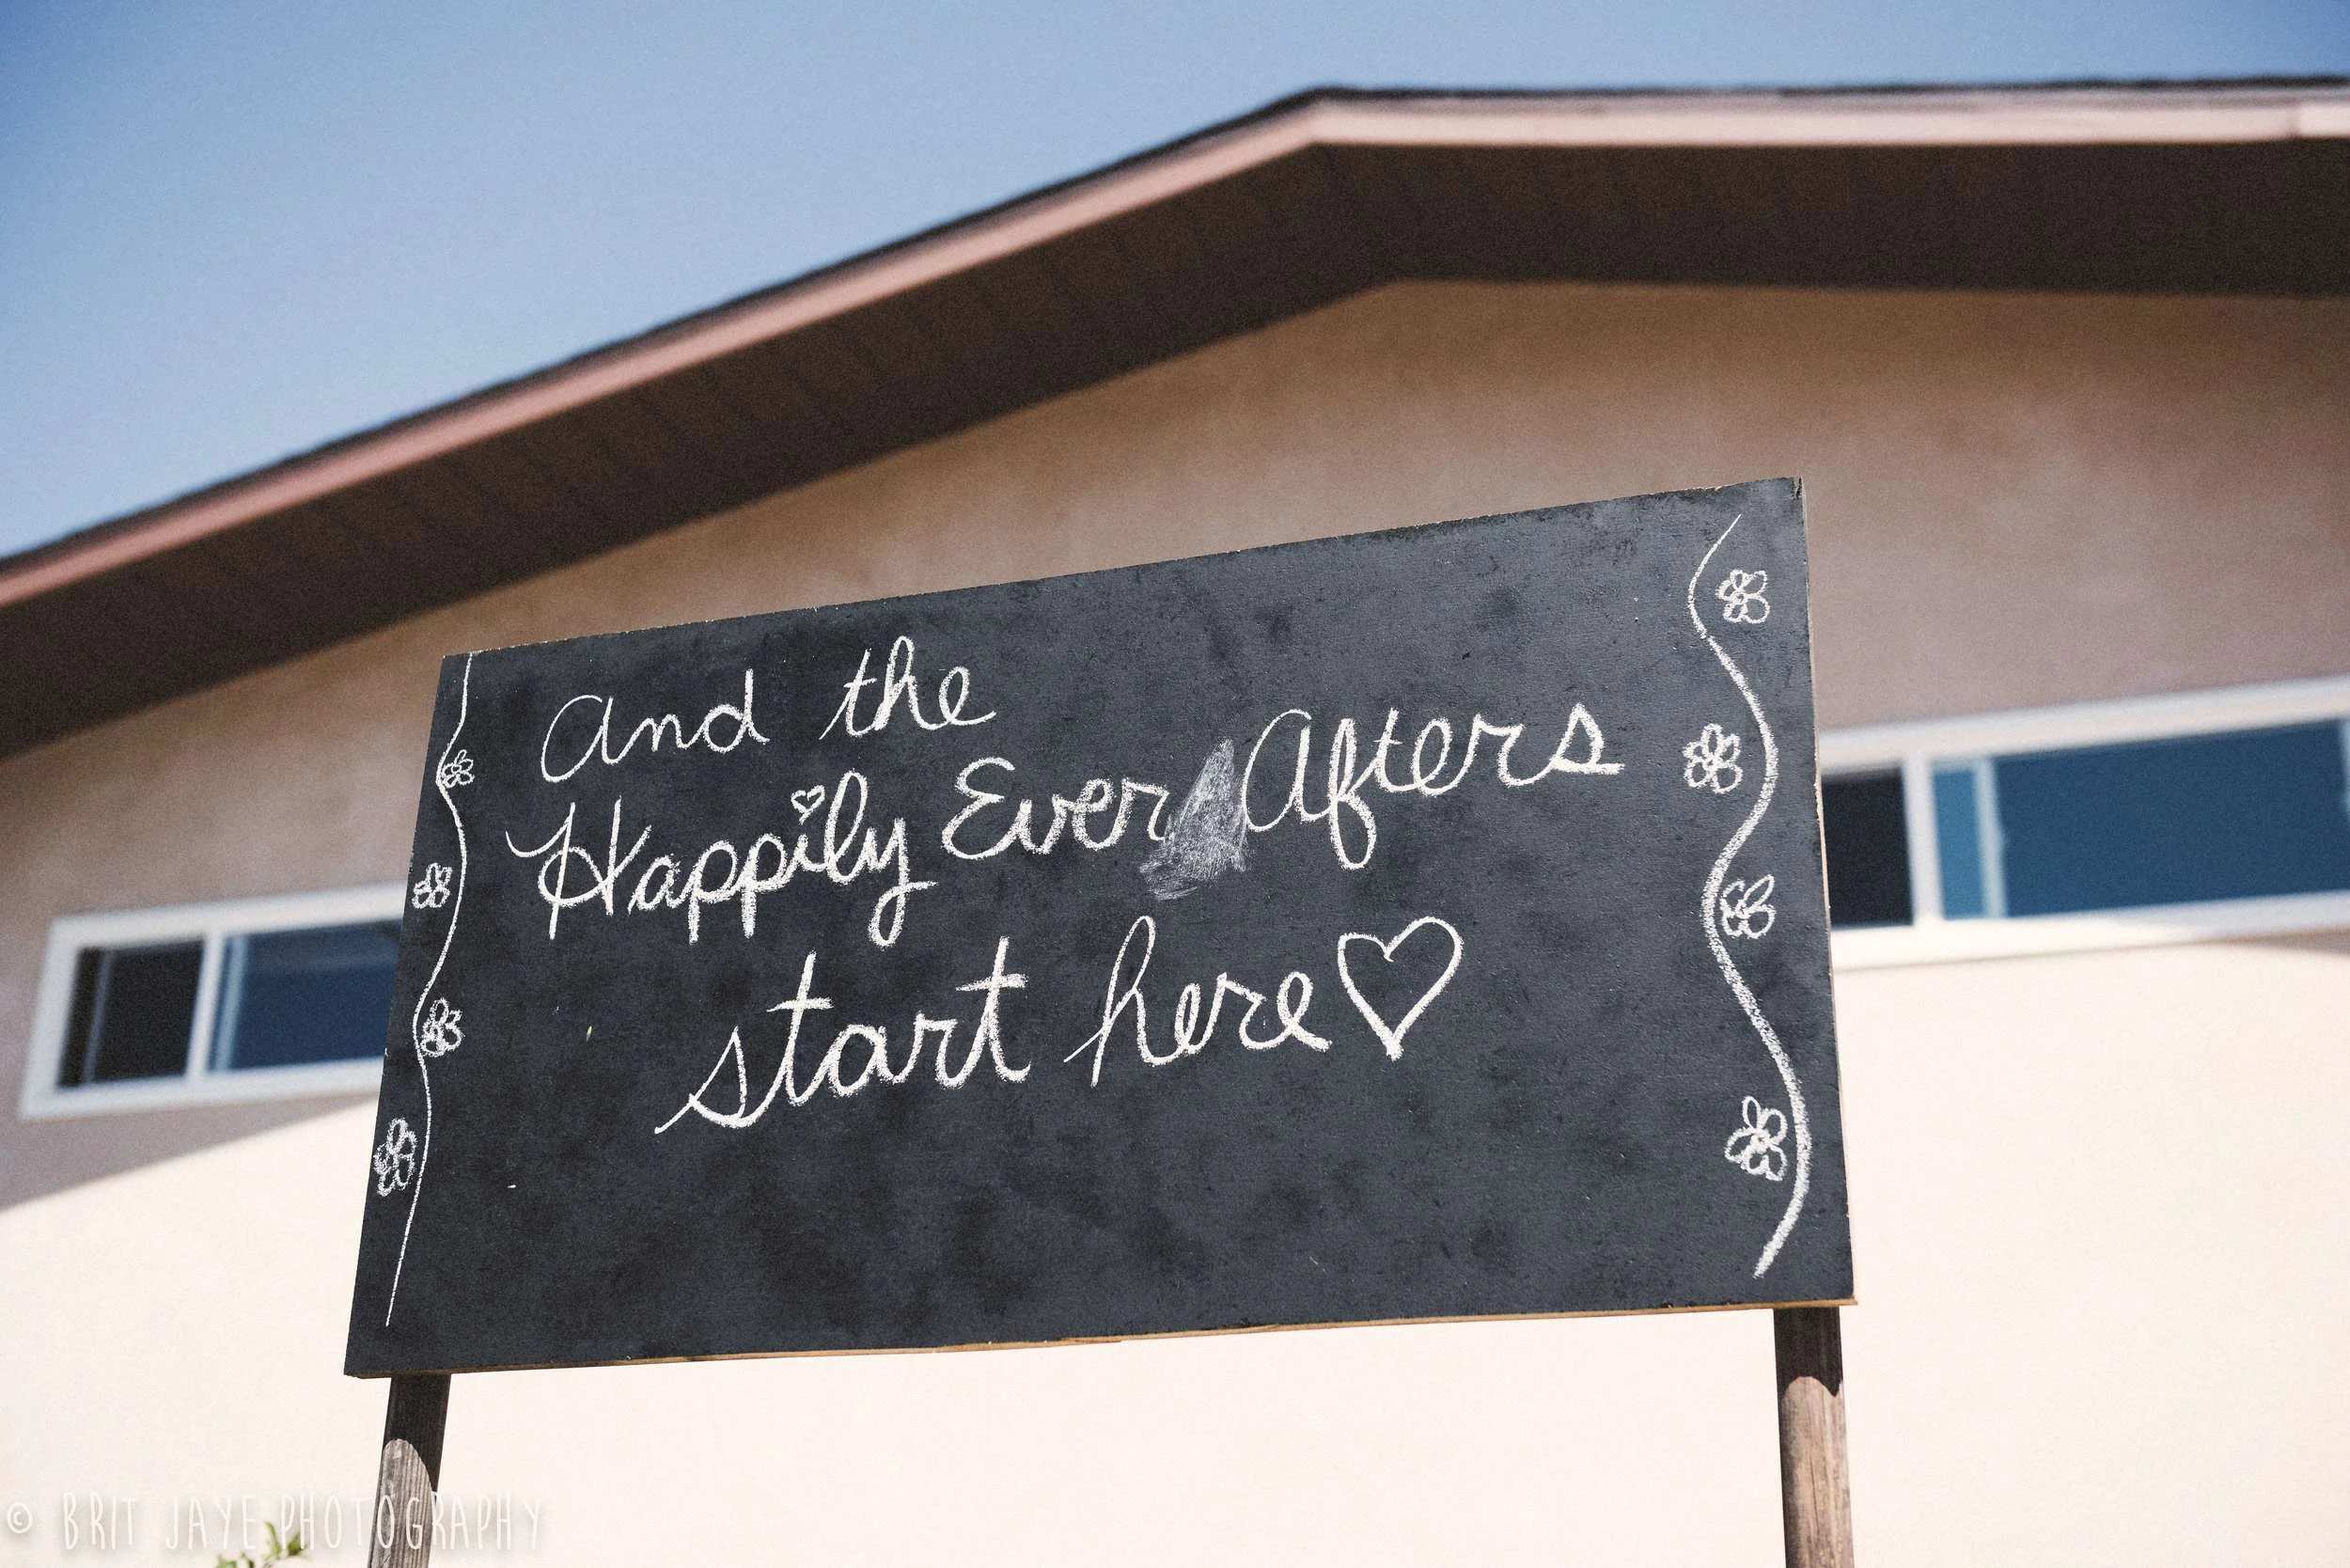 And the
Happily Ever Afters
start here
© BRIT JAYE PHOTOGRAPHY